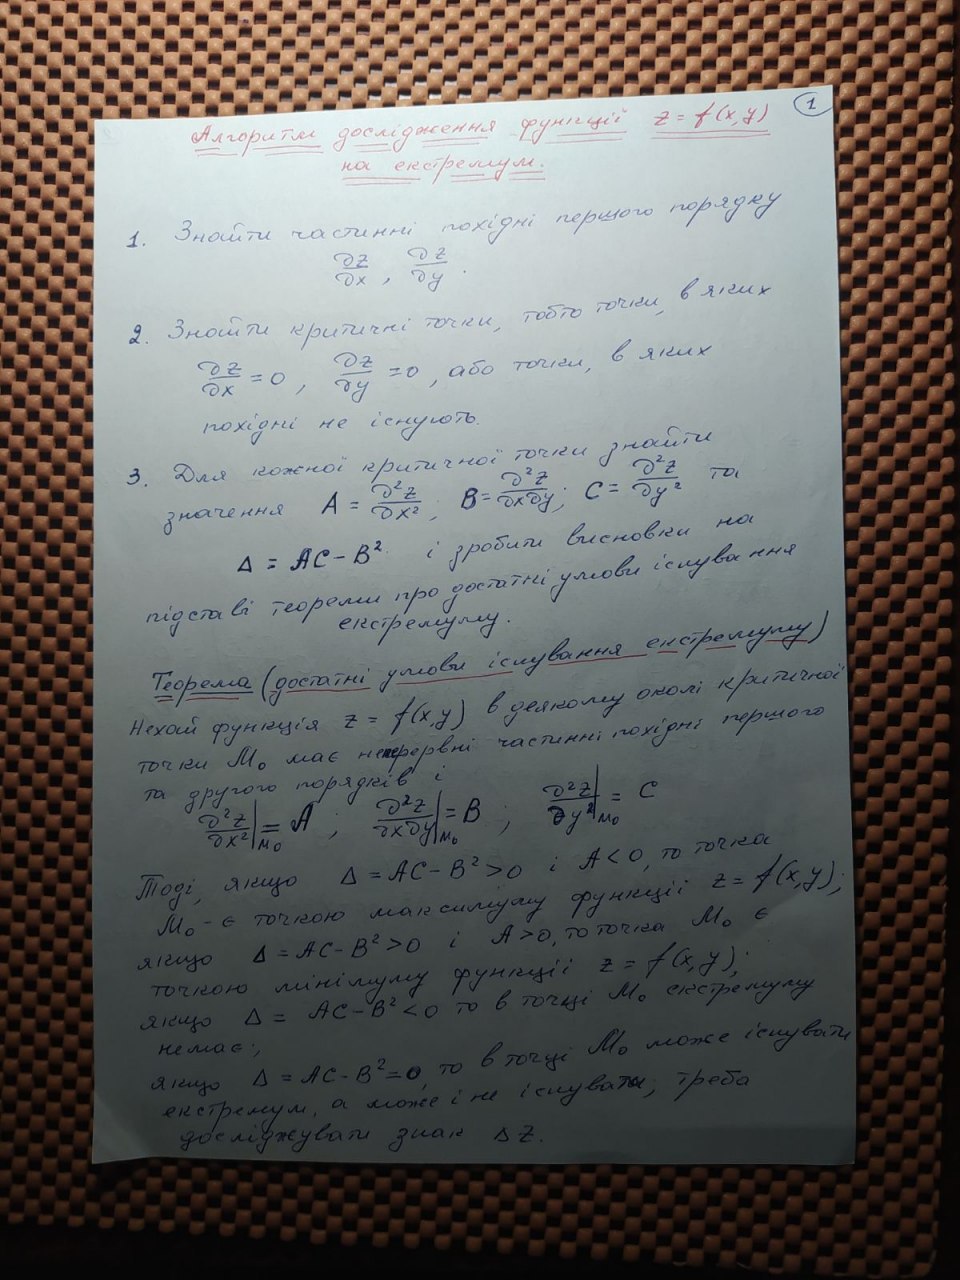 1
Алгоритм дослідження функції z = f(x,y)
на екстремум.
1. Знайти частинні похідні першого порядку
∂z/∂x, ∂z/∂y.
2. Знайти критичні точки, тобто точки, в яких
∂z/∂x = 0, ∂z/∂y = 0, або точки, в яких
похідні не існують.
3. Для кожної критичної точки знайти
значення A = ∂²z/∂x²; B = ∂²z/∂x∂y; C = ∂²z/∂y² та
Δ = AC - B² і зробити висновки на
підставі теореми про достатні умови існування
екстремуму.
Теорема (достатні умови існування екстремуму)
Нехай функція z = f(x,y) в деякому околі критичної
точки M₀ має неперервні частинні похідні першого
та другого порядків і
∂²z/∂x²|M₀ = A; ∂²z/∂x∂y|M₀ = B; ∂²z/∂y²|M₀ = C
Тоді, якщо Δ = AC - B² > 0 і A < 0, то точка
M₀ - є точкою максимуму функції z = f(x,y);
якщо Δ = AC - B² > 0 і A > 0, то точка M₀ є
точкою мінімуму функції z = f(x,y);
якщо Δ = AC - B² < 0 то в точці M₀ екстремуму
немає;
якщо Δ = AC - B² = 0, то в точці M₀ може існувати
екстремум, а може і не існувати; треба
досліджувати знак Δz.